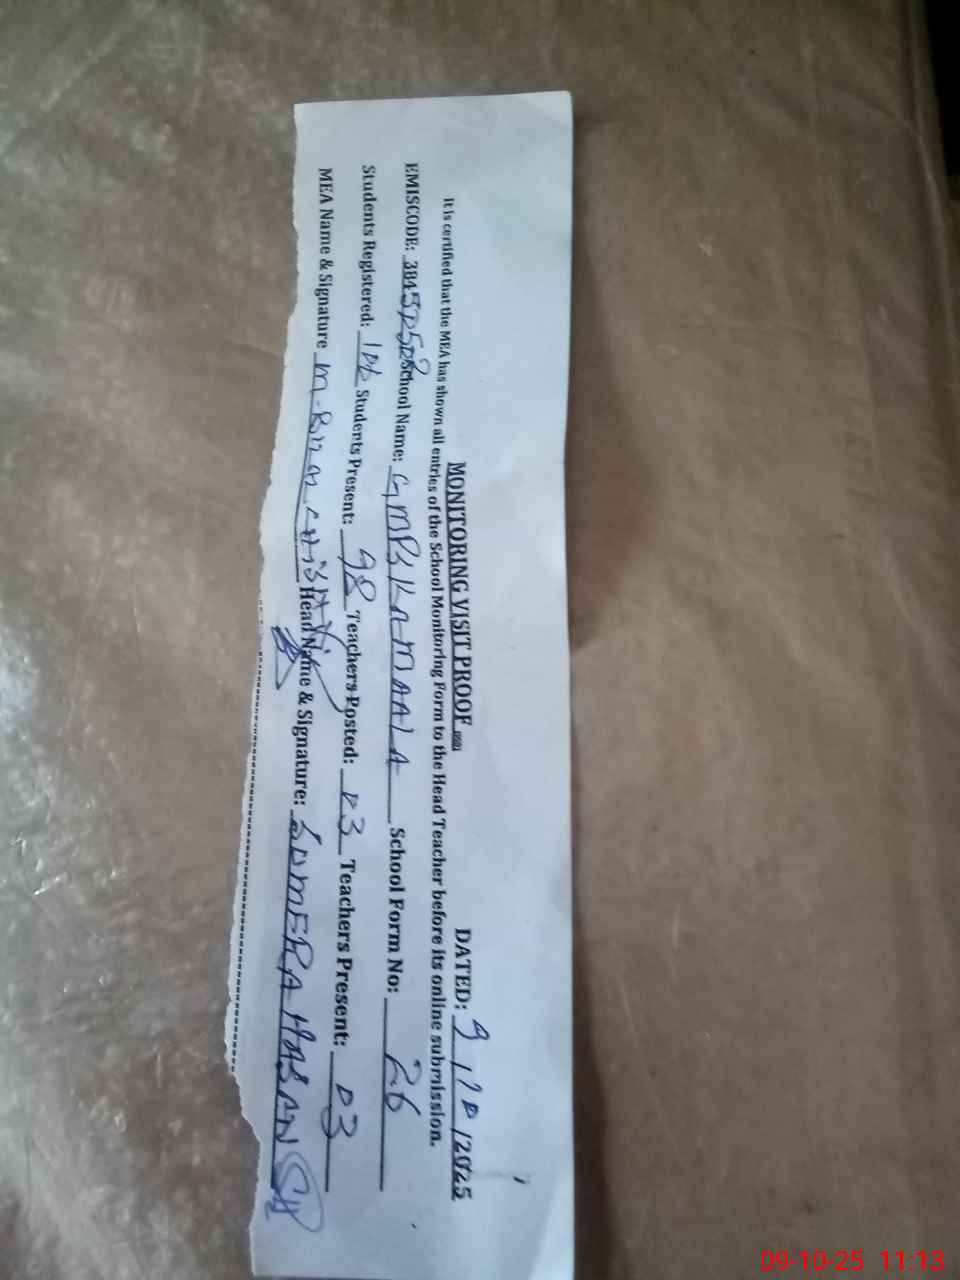 MONITORING VISIT PROOF DATED: 9/10/2025
It is certified that the MEA has shown all entries of the School Monitoring Form to the Head Teacher before its online submission.
EMISCODE: School Name: GMPS KAMAALA School Form No: 26
Students Registered: 106 Students Present: 98 Teachers Posted: 03 Teachers Present: 03
MEA Name & Signature Head Name & Signature: SUMERA HASAN
09-10-25 11:13